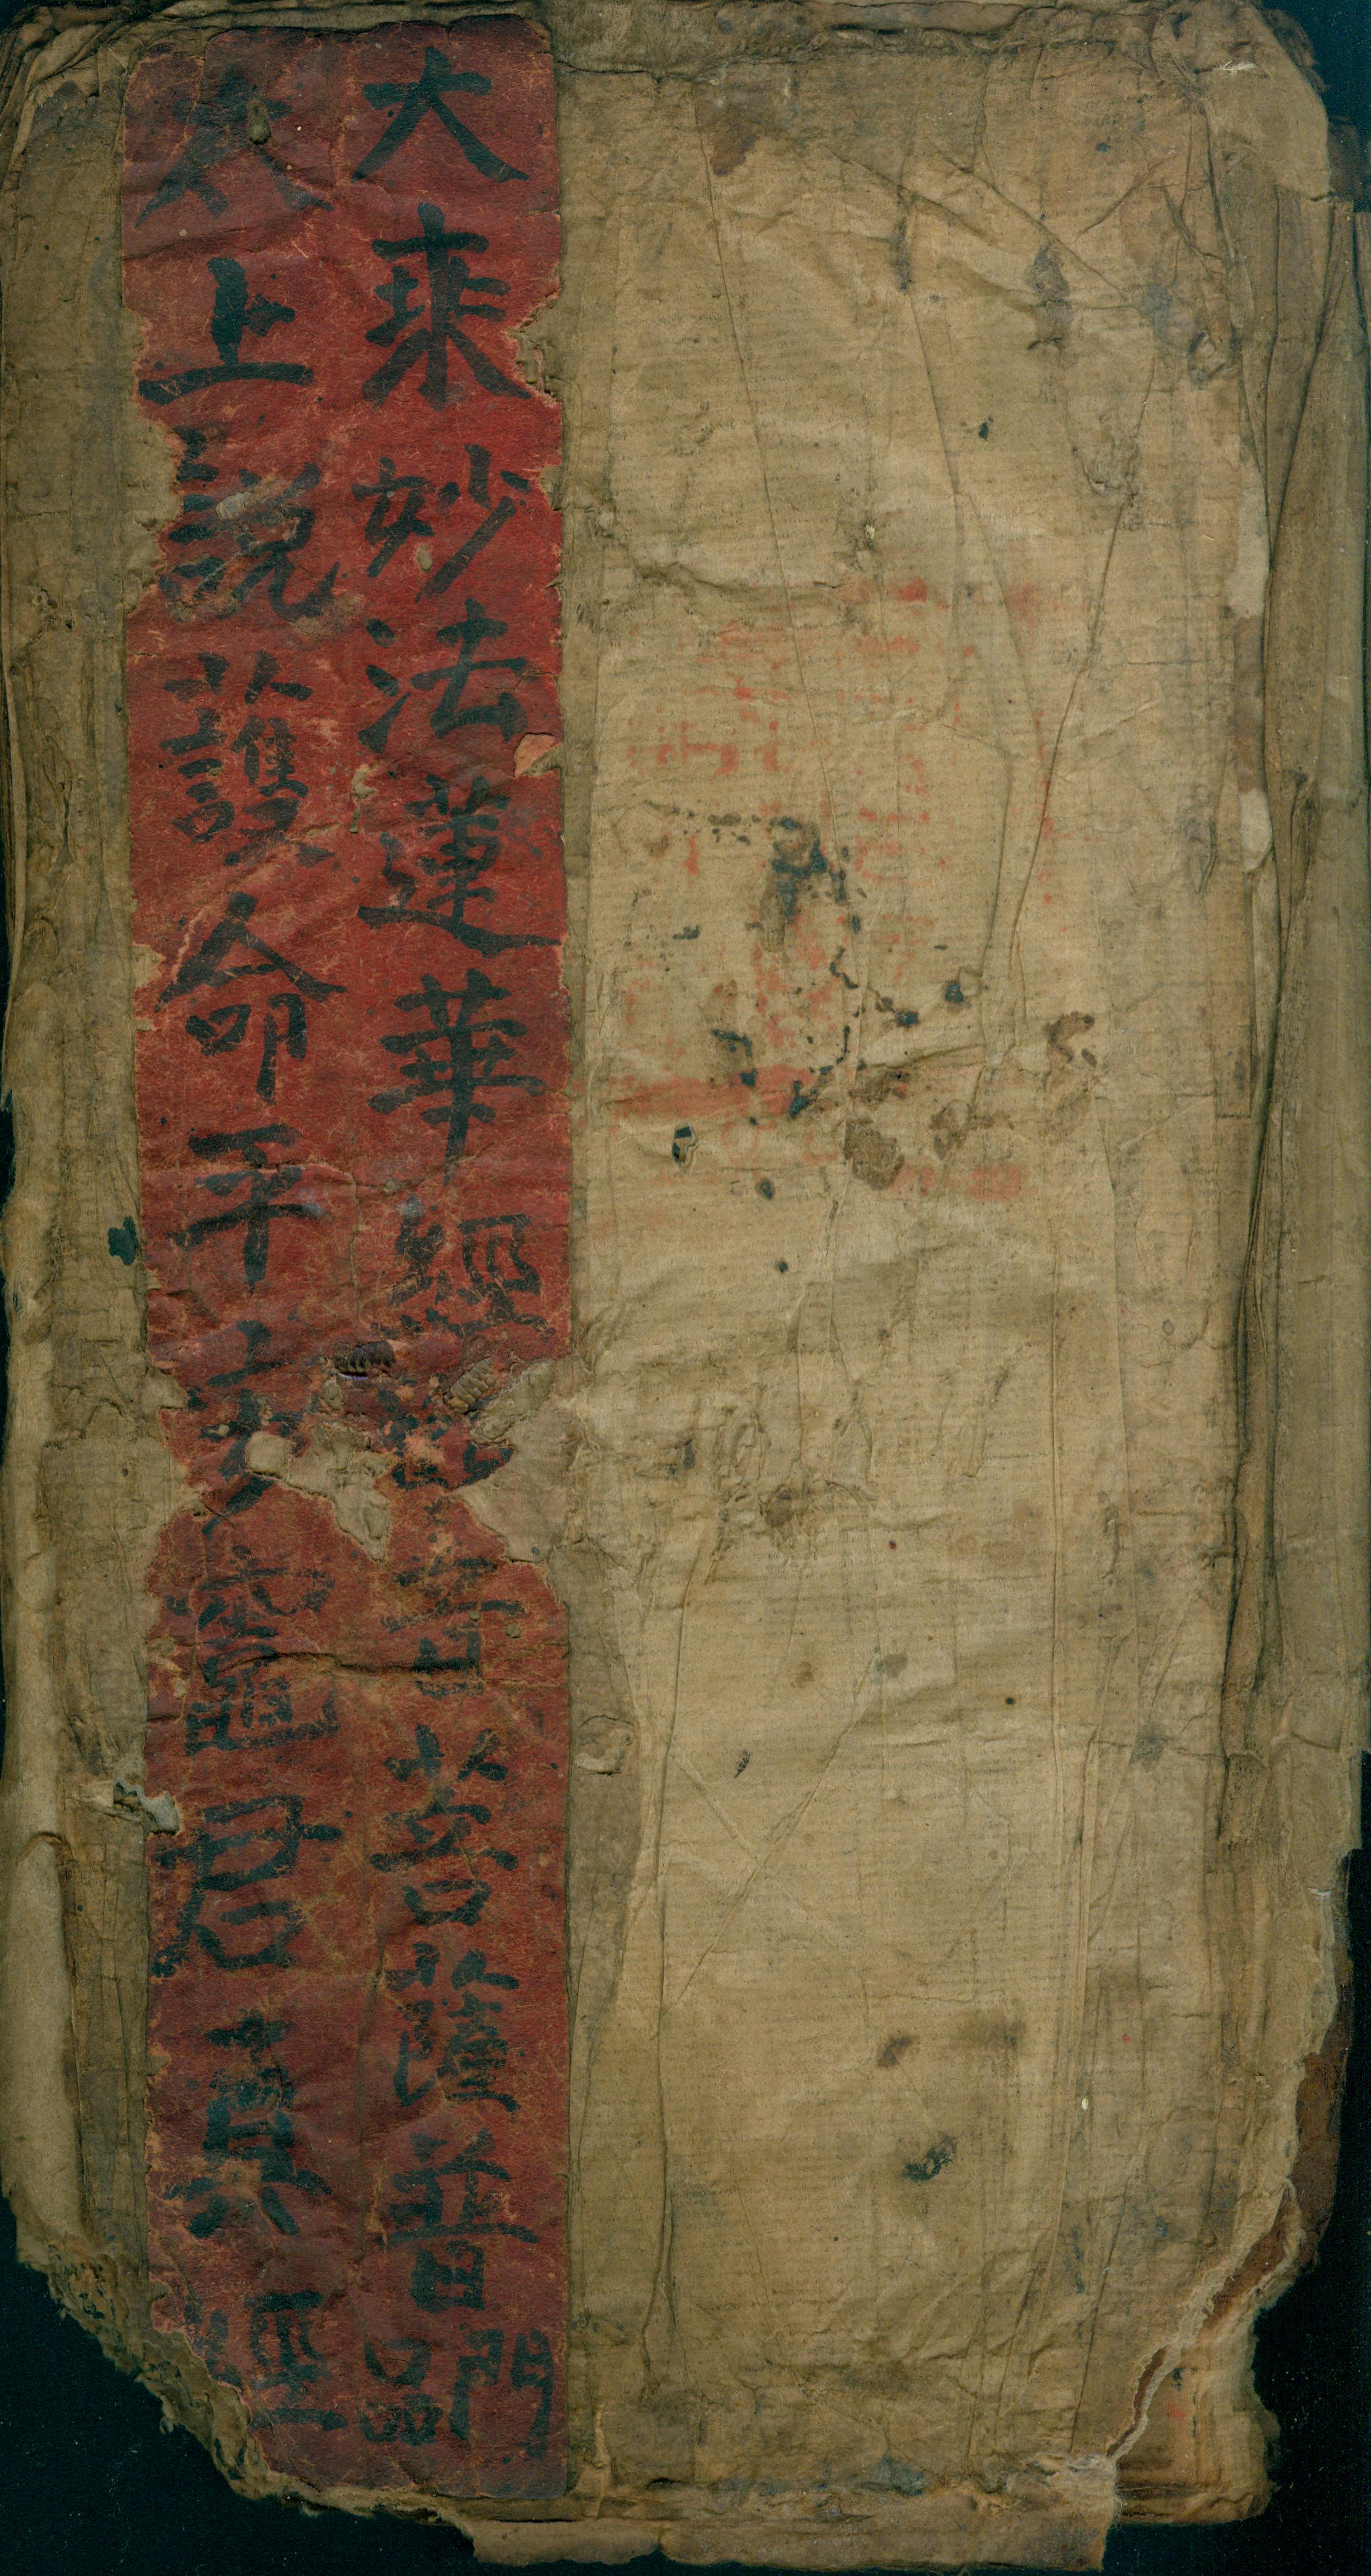 大乘妙法蓮華經音菩薩普門品
太上說護命平安竈君真經